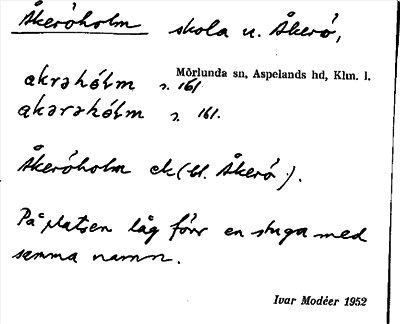 Åkeröholm skola u. Åkerö,
Mörlunda sn, Aspelands hd, Klm. l.
akrəhólm s. 161.
akərəhólm s. 161.
Åkeröholm ek (bl. Åkerö).
På platsen låg förr en stuga med
samma namn.
Ivar Modéer 1952